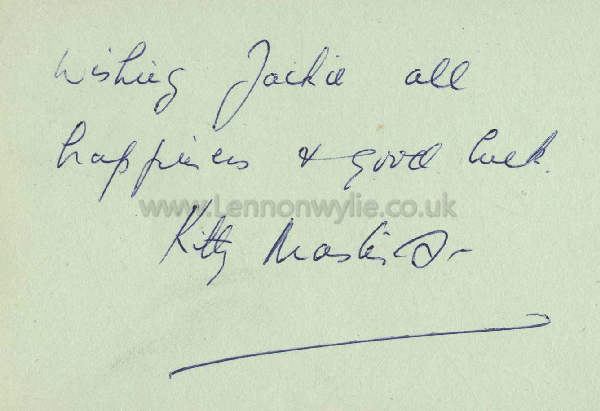 Wishing Jackie all
happiness & good luck.
www.Lennonwylie.co.uk
Kitty